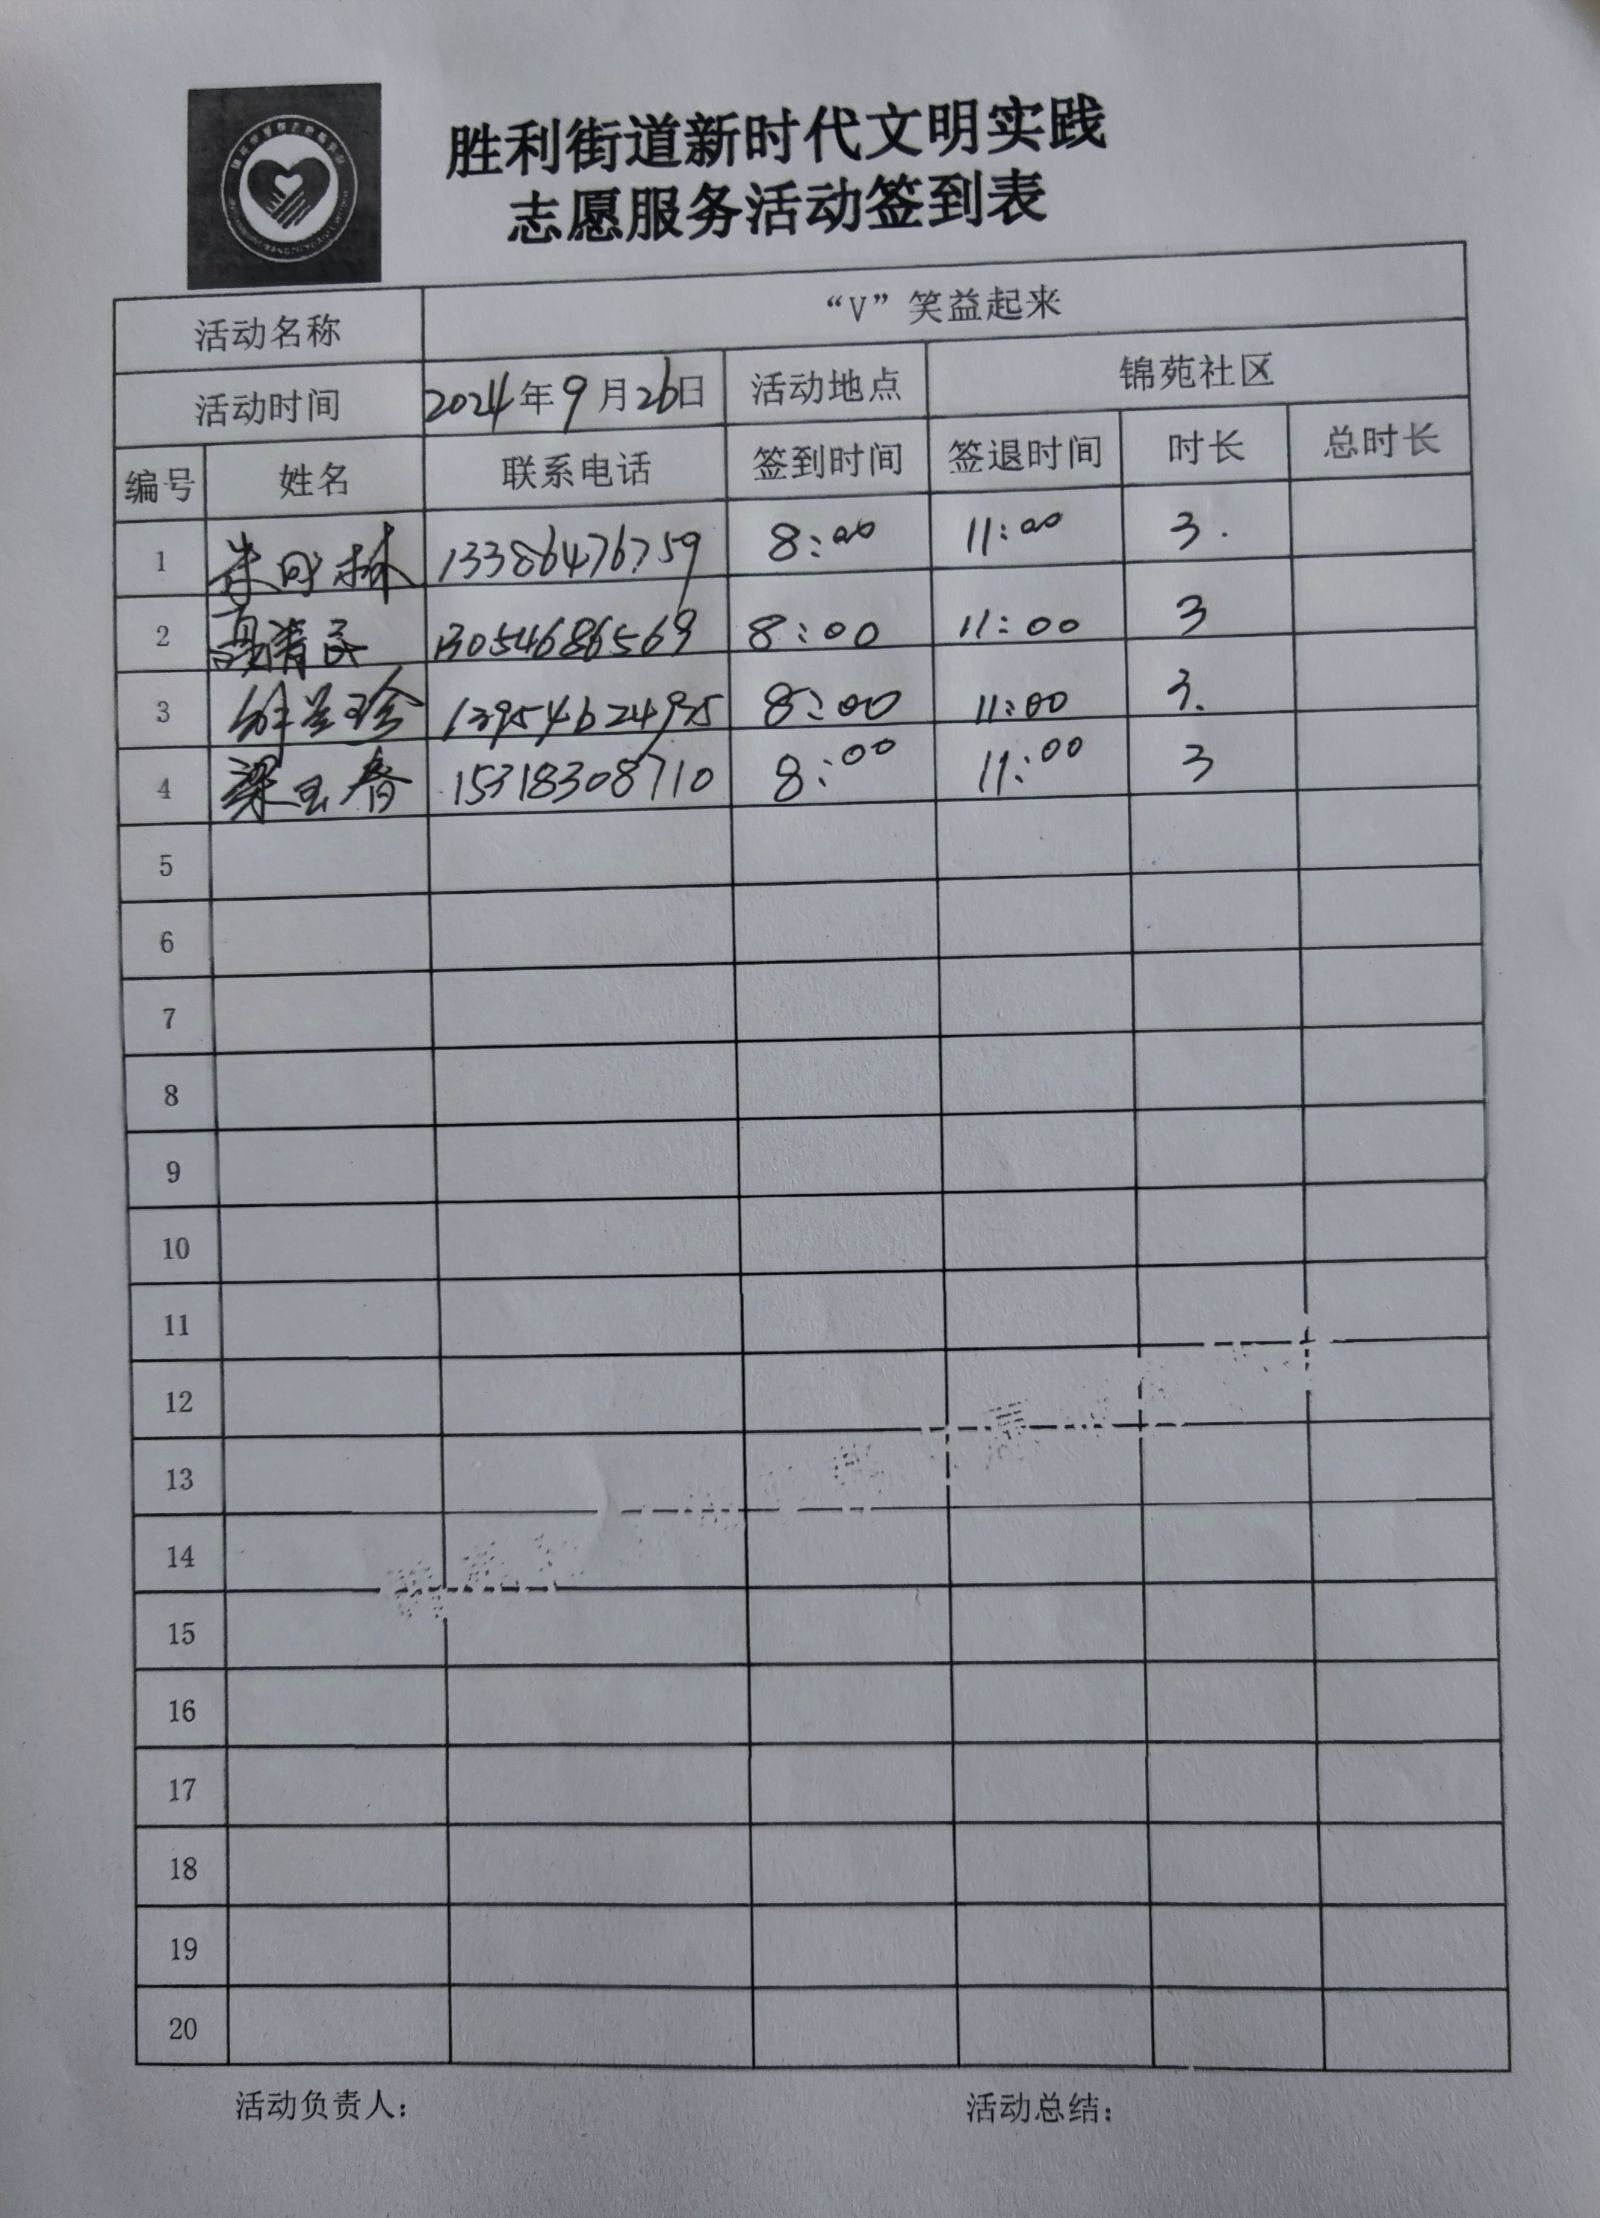 胜利街道新时代文明实践
志愿服务活动签到表
活动名称 “V”笑益起来
活动时间 2024年9月26日 活动地点 锦苑社区
编号 姓名 联系电话 签到时间 签退时间 时长 总时长
1 林 13386476759 8:00 11:00 3.
2 清 13054686569 8:00 11:00 3
3 兰珍 8:00 11:00 3.
4 梁玉春 15318308710 8:00 11:00 3
5
6
7
8
9
10
11
12
13
14
15
16
17
18
19
20
活动负责人: 活动总结: